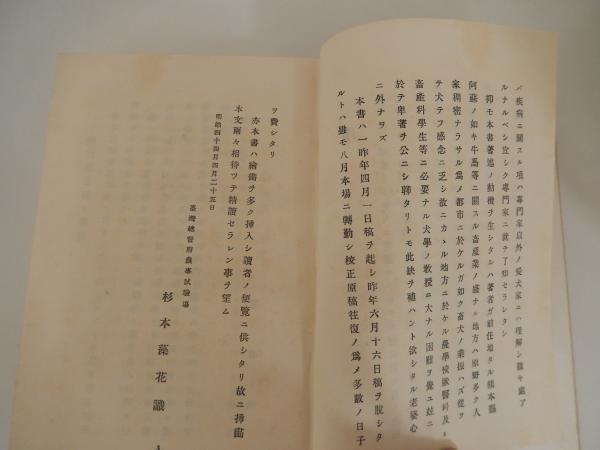 バ疾病ニ關スル項ハ專門家以外ノ愛犬家ニハ理解シ難キ處ア
ルナルベシ宜シク專門家ニ就テ了知セラレタシ
抑モ本書著述ノ動機ヲ生シタルハ著者ガ前任地タル熊本縣
阿蘇ノ如キ牛馬等ニ關スル畜産業ノ盛ナル地方ハ原野多ク人
家稠密ナラサル爲メ都市ニ於ケルガ如ク畜犬ノ業振ハズ從ツ
テ犬テフ感念ニ乏シ故ニカヽル地方ニ於ケル農學校獸醫科及
畜産科學生等ニ必要ナル犬學ノ教授ニ大ナル困難ヲ覺ユ玆ニ
於テ卑著ヲ公ニシ聊タリトモ此缺ヲ補ハント欲シタル老婆心
ニ外ナラズ
本書ハ一昨年四月一日稿ヲ起シ昨年六月十六日稿ヲ脫シタ
ルトハ雖モ八月本場ニ轉勤シ校正原稿往復ノ爲メ多數ノ日子
ヲ費シタリ
亦本書ハ繪畵ヲ多ク挿入シ讀者ノ便覽ニ供シタリ故ニ挿畵
本文兩々相待ツテ精讀セラレン事ヲ望ム
明治四十四年四月二十五日
臺灣總督府農事試驗場
杉本藻花識